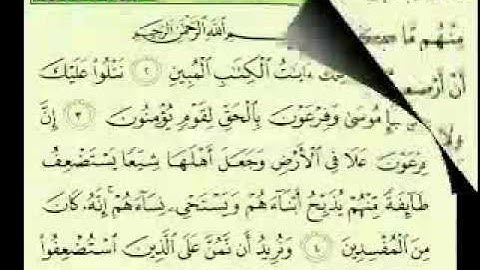 بِسْمِ ٱللَّهِ ٱلرَّحْمَٰنِ ٱلرَّحِيمِ
ءَايَٰتُ ٱلْكِتَٰبِ ٱلْمُبِينِ ٢ نَتْلُوا۟ عَلَيْكَ
مُوسَىٰ وَفِرْعَوْنَ بِٱلْحَقِّ لِقَوْمٍ يُؤْمِنُونَ ٣ إِنَّ
فِرْعَوْنَ عَلَا فِى ٱلْأَرْضِ وَجَعَلَ أَهْلَهَا شِيَعًا يَسْتَضْعِفُ
طَآئِفَةً مِّنْهُمْ يُذَبِّحُ أَبْنَآءَهُمْ وَيَسْتَحْىِۦ نِسَآءَهُمْ إِنَّهُۥ كَانَ
مِنَ ٱلْمُفْسِدِينَ ٤ وَنُرِيدُ أَن نَّمُنَّ عَلَى ٱلَّذِينَ ٱسْتُضْعِفُوا۟
مِنْهُم مَّا
أَنْ أَرْضِعِ